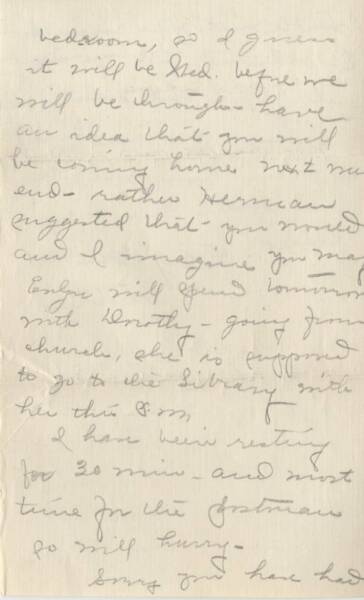 bedroom, so I guess
it will be Wed. before we
will be through - have
an idea that you will
be coming home next
end - rather Herman
suggested that you would
and I imagine you may
will spend tomorrow
with Dorothy - going from
church, she is supposed
to go to the Library with
her this P.M.
I have been resting
for 30 min - and most
time for the Postman
so will hurry -
Sorry you have had